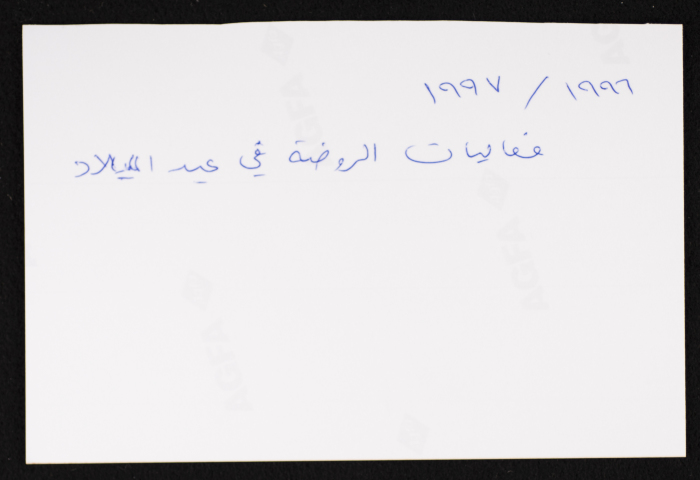 ١٩٩٦ / ١٩٩٧
فعاليات الروضة في عيد الميلاد
AGFA
AGFA
AGFA
AGFA